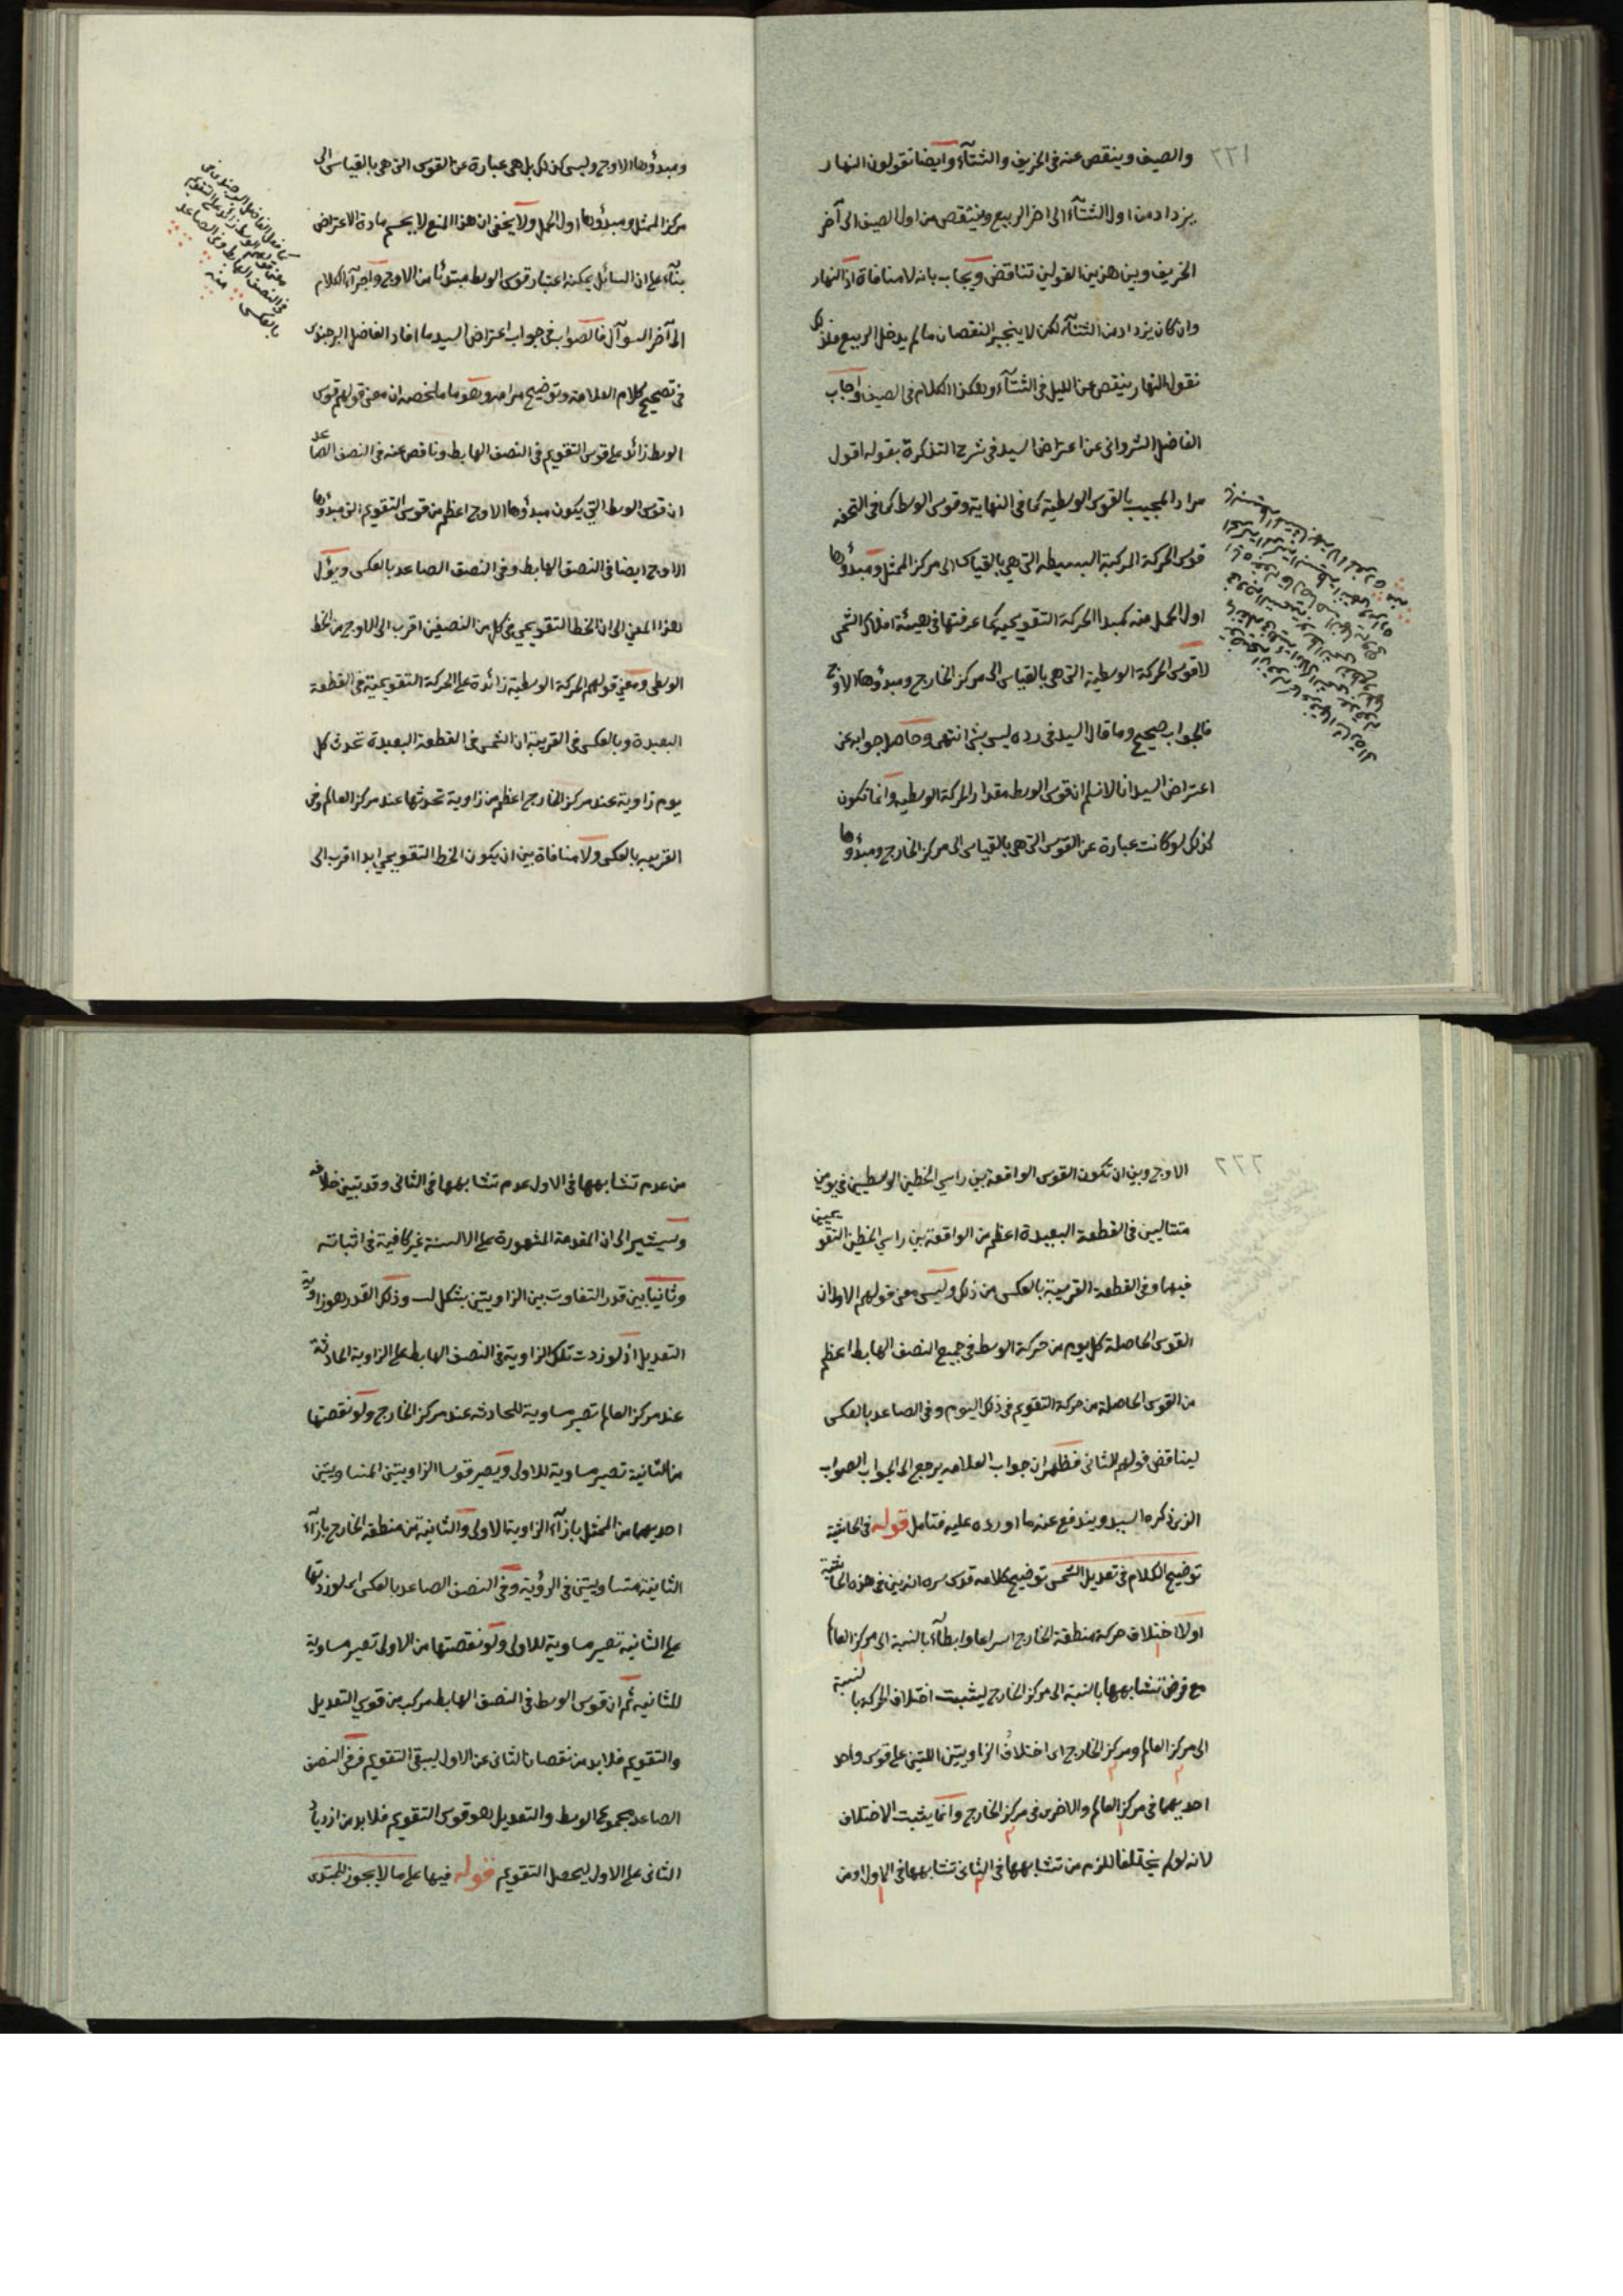 ٢٢١
والصيف وينقص عنه فى الخريف والشتآء وايضا تقولون النهار
يزداد من اول الشتآء الى اخر الربيع وينتقص من اول الصيف الى آخر
الخريف وبين هذين القولين تناقض ويجاب بانه لا منافاة اذ النهار
وان كان يزداد من الشتآء لكن لا ينجبر النقصان ما لم يدخل الربيع فلذلك
نقول النهار ينقص عن الليل فى الشتآء وهكذا الكلام فى الصيف واجاب
الفاضل الشروانى عن اعتراض السيد فى شرح التذكرة بقوله اقول
مراد المجيب بالقوس الوسطية كما فى النهاية وقوس الوسط كما فى التحفه
قوس الحركة المركبة البسيطه التى هى بالقياس الى مركز الممثل ومبدؤها
اول الحمل منه كمبدا الحركة التقويميه كما عرفتها فى هيئة افلاك الشمس
لا قوس الحركة الوسطية التى هى بالقياس الى مركز الخارج ومبدؤها الاوج
فالجواب صحيح وما قال السيد فى رده ليس بشئ انتهى وحاصل جوابه عن
اعتراض السيد انا لا نسلم ان قوس الوسط مقدار الحركة الوسطيه وانما تكون
كذلك لو كانت عبارة عن القوس التى هى بالقياس الى مركز الخارج ومبدؤها
ومبدؤها الاوج وليس كذلك بل هى عبارة عن القوس التى هى بالقياس الى
مركز الممثل ومبدؤها اول الحمل ولا يخفى ان هذا المنع لا يحسم مادة الاعتراض
بنآء على ان السائل يمكنه اعتبار قوس الوسط مبتدئا من الاوج واجرآء الكلام
الى آخر السوآل فالصواب فى جواب اعتراض السيد ما افاد الفاضل البرجندى
فى تصحيح كلام العلامة وتوضيح مرامه وهو ما ملخصه ان معنى قولهم قوس
الوسط زائد على قوس التقويم فى النصف الهابط وناقص عنه فى النصف الصاعد
ان قوس الوسط التى يكون مبدؤها الاوج اعظم من قوس التقويم التى مبدؤها
الاوج ايضا فى النصف الهابط وفى النصف الصاعد بالعكس ويؤل
هذا المعنى الى ان الخط التقويمى فى كل من النصفين اقرب الى الاوج من الخط
الوسطى ومعنى قولهم الحركة الوسطية زائدة على الحركة التقويمية فى القطعة
البعيدة وبالعكس فى القريبة ان الشمس فى القطعة البعيدة تحدث كل
يوم زاوية عند مركز الخارج اعظم من زاوية تحدثها عند مركز العالم وفى
القريبه بالعكس ولا منافاة بين ان يكون الخط التقويمى ابدا اقرب الى
كما فعل الفاضل البرجندى فى
معنى قولهم الوسط زائد على التقويم
فى النصف الهابط وفى الصاعد
بالعكس منه
٢٢٢
الاوج وبين ان تكون القوس الواقعة بين راسى الخطين الوسطيين فى يومين
متتاليين فى القطعة البعيدة اعظم من الواقعة بين راسى الخطين التقويميين
فيها وفى القطعة القريبة بالعكس من ذلك وليس معنى قولهم الاول ان
القوس الحاصلة كل يوم من حركة الوسط فى جميع النصف الهابط اعظم
من القوس الحاصلة من حركة التقويم فى ذلك اليوم وفى الصاعد بالعكس
ليناقض قولهم الثانى فظهر ان جواب العلامه يرجع الى الجواب الصواب
الذى ذكره السيد ويندفع عنه ما اورده عليه فتامل قوله فى الحاشية
توضيح الكلام فى تعديل الشمس توضيح كلامه قدس سره انه بين فى هذه الحاشية
اولا اختلاف حركة منطقة الخارج اسراعا وابطآء بالنسبة الى مركز العالم
مع فرض تشابهها بالنسبة الى مركز الخارج ليثبت اختلاف الحركة بالنسبة
الى مركز العالم ومركز الخارج اى اختلاف الزاويتين اللتين على قوس واحد
احديهما فى مركز العالم والاخرى فى مركز الخارج وانما يثبت الاختلاف
لانه لو لم يختلفا للزم من تشابهها فى الثانى تشابهها فى الاول او من
من عدم تشابهها فى الاول عدم تشابهها فى الثانى وقد تبين خلافه
وسيشير الى ان المقدمة المشهورة على الالسنة غير كافية فى اثباته
وثانيا بين قدر التفاوت بين الزاويتين بشكل لب وذلك القدر هو زاوية
التعديل اذ لو زدت تلك الزاوية فى النصف الهابط على الزاوية الحادثة
عند مركز العالم تصير مساوية للحادثه عند مركز الخارج ولو نقصتها
من الثانية تصير مساوية للاولى ويصير قوسا الزاويتين المتساويتين
احديهما من الممثل بازآء الزاوية الاولى والثانية من منطقة الخارج بازآء
الثانية متساويتين فى الرؤية وفى النصف الصاعد بالعكس اى لو زدتها
على الثانية تصير مساوية للاولى ولو نقصتها من الاولى تصير مساوية
للثانيه ثم ان قوس الوسط فى النصف الهابط مركب من قوسى التعديل
والتقويم فلا بد من نقصان الثانى عن الاول ليبقى التقويم وفى النصف
الصاعد مجموع الوسط والتعديل هو قوس التقويم فلا بد من ازدياد
الثانى على الاول ليحصل التقويم قوله فيها على ما لا يجوز للمبتدى